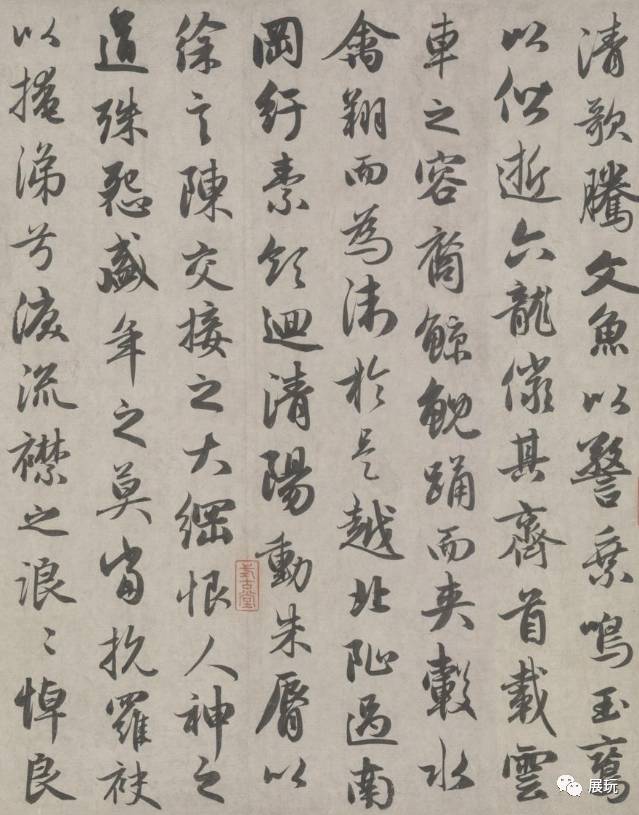 清歌騰文魚以警乗鳴玉鸞
以偕逝六龍儼其齊首載雲
車之容裔鯨鯢踊而夾轂水
禽翔而為衛於是越北沚過南
岡紆素領迴清陽動朱脣以
徐言陳交接之大綱恨人神之
道殊怨盛年之莫當抗羅袂
以掩涕兮淚流襟之浪〻悼良
展玩